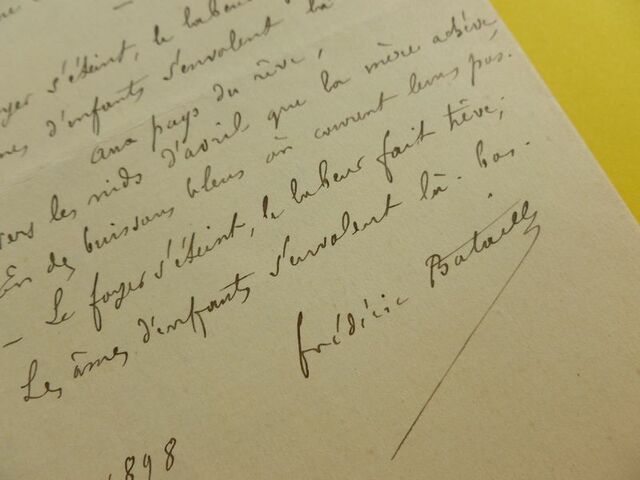 s'éteint, le labeur
d'enfants s'envolent là
aux pays du rêve,
les nids d'avril que la mère achève
En des buissons bleus où courent leurs pas.
– Le foyer s'éteint, le labeur fait trêve;
Les âmes d'enfants s'envolent là-bas.
Frédéric Bataille
1898